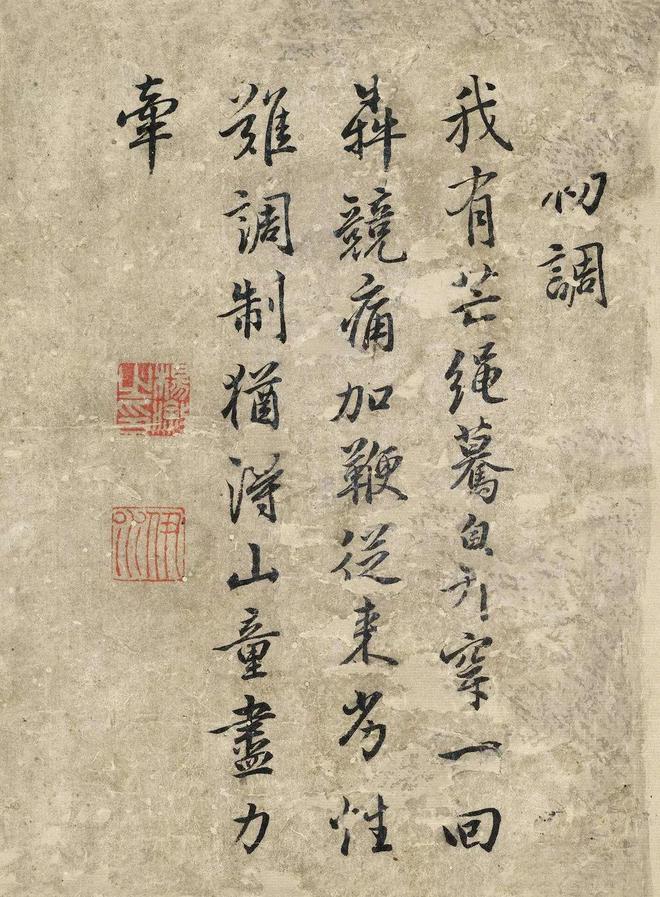 初調
我有芒繩驀鼻穿一回
犇競痛加鞭從来劣性
難調制猶得山童盡力
牽